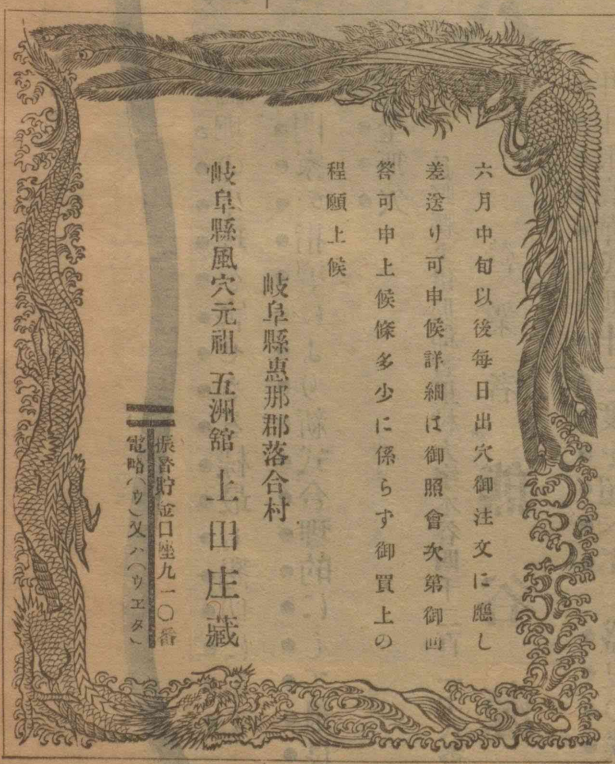 六月中旬以後毎日出穴御注文に應し
差送り可申候詳細は御照會次第御回
答可申上候條多少に係らず御買上の
程願上候
岐阜縣惠那郡落合村
岐阜縣風穴元祖 五洲舘 上田庄藏
振替貯金口座九一〇番
電略(ウ)又ハ(ウエダ)